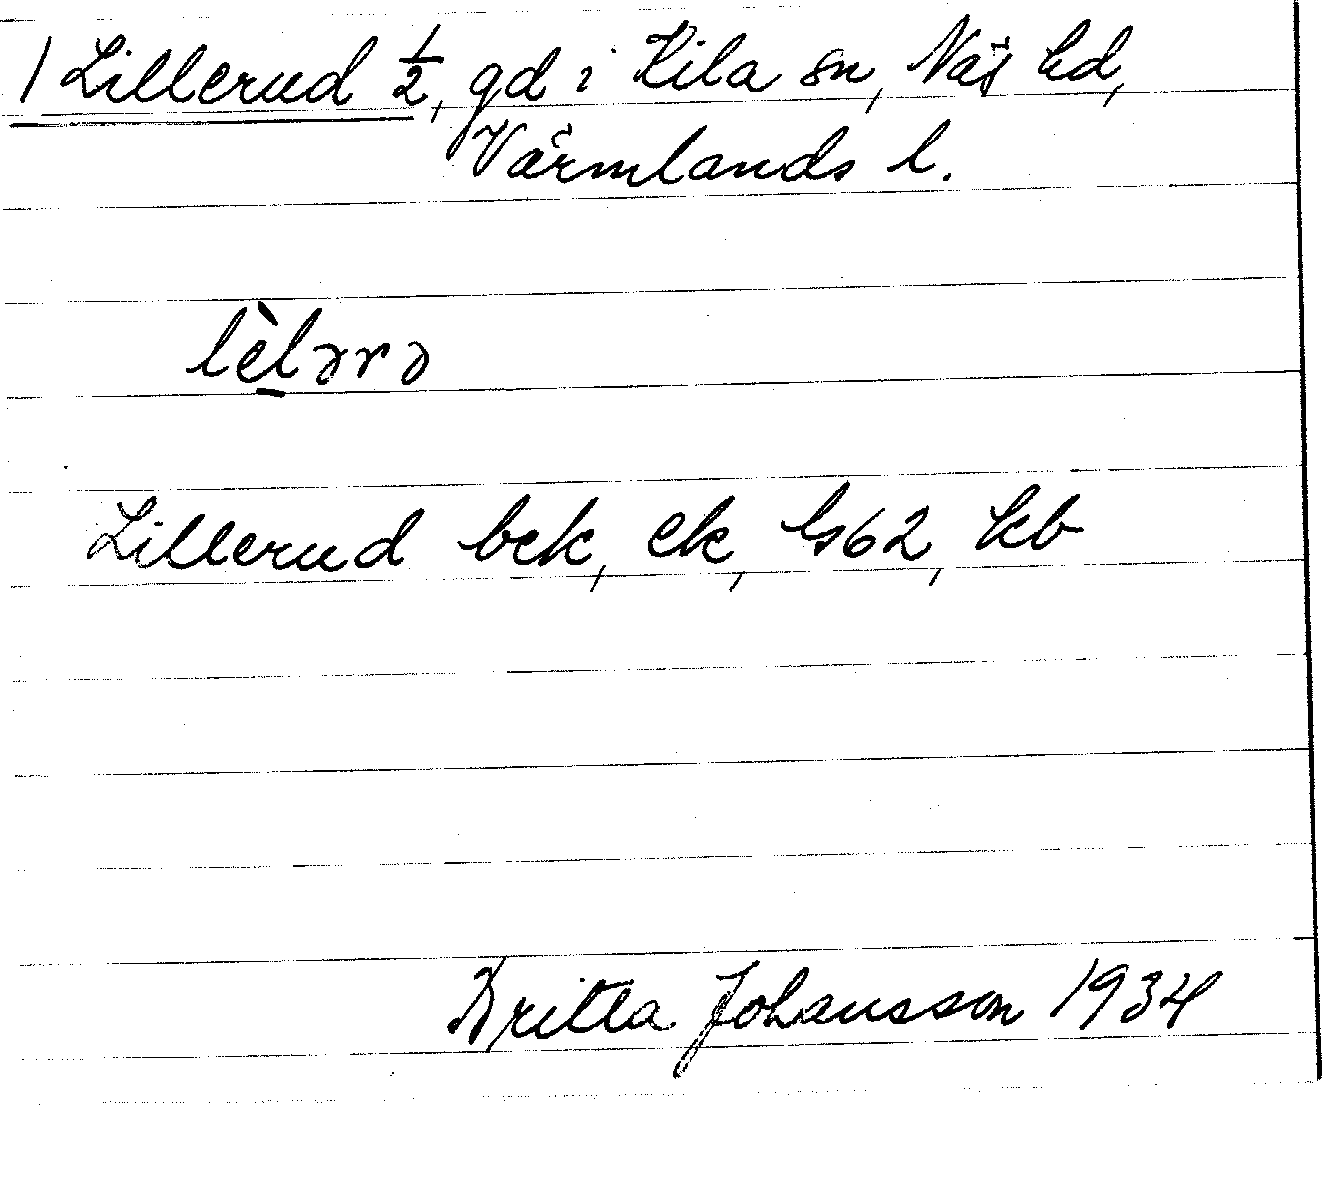 1 Lillerud 1/2, gd i Kila sn, Näs hd,
Värmlands l.
lèlərə
Lillerud bek, ek, ls62, kb
Britta Johansson 1934